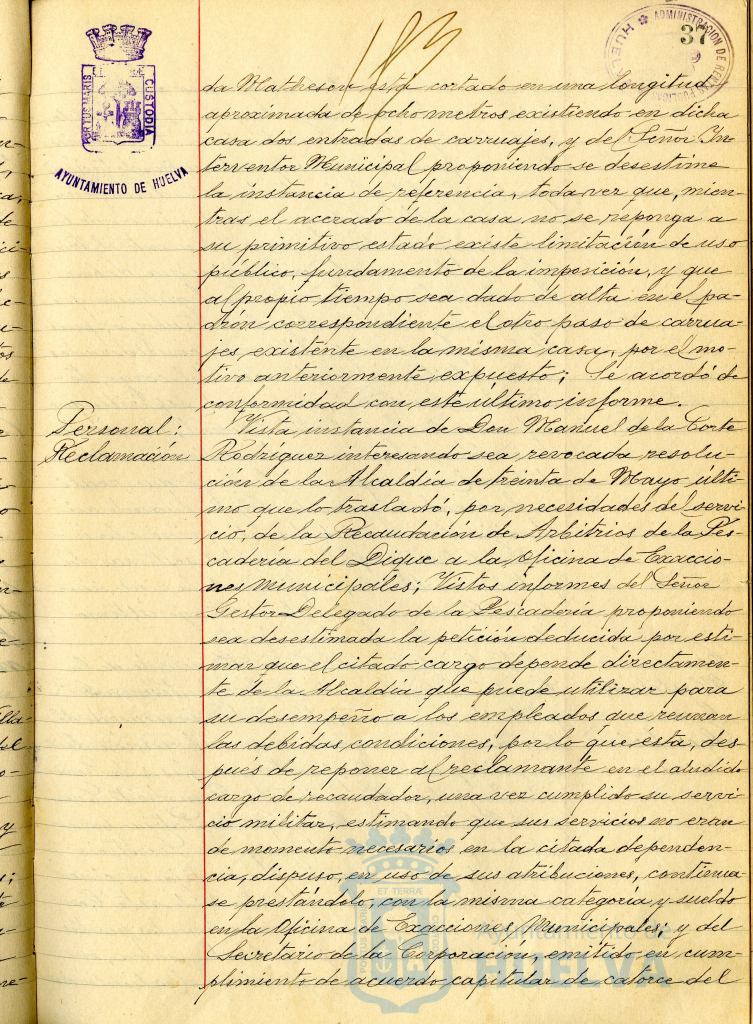 183
ADMINISTRACIÓN DE RENTAS PÚBLICAS
HUELVA
37
PORTUS MARIS
CUSTODIA
AYUNTAMIENTO DE HUELVA
da Matheson está cortado en una longitud
aproximada de ocho metros existiendo en dicha
casa dos entradas de carruajes, y del Señor In-
terventor Municipal proponiendo se desestime
la instancia de referencia, toda vez que, mien-
tras el acerado de la casa no se reponga a
su primitivo estado existe limitación de uso
público, fundamento de la imposición, y que
al propio tiempo sea dado de alta en el pa-
drón correspondiente el otro paso de carrua-
jes existente en la misma casa, por el mo-
tivo anteriormente expuesto; Se acordó de
conformidad con este último informe.
Personal:
Reclamación
Vista instancia de Don Manuel de la Corte
Rodríguez interesando sea revocada resolu-
ción de la Alcaldía de treinta de Mayo últi-
mo que lo trasladó, por necesidades del servi-
cio, de la Recaudación de Arbitrios de la Pes-
cadería del Dique a la Oficina de Exaccio-
nes Municipales; Vistos informes del Señor
Gestor Delegado de la Pescadería proponiendo
sea desestimada la petición deducida por esti-
mar que el citado cargo depende directamen-
te de la Alcaldía que puede utilizar para
su desempeño a los empleados que reunan
las debidas condiciones, por lo que ésta, des-
pués de reponer al reclamante en el aludido
cargo de recaudador, una vez cumplido su servi-
cio militar, estimando que sus servicios no eran
de momento necesarios en la citada dependen-
cia, dispuso, en uso de sus atribuciones, continua-
se prestándolo, con la misma categoría y sueldo
en la Oficina de Exacciones Municipales; y del
Secretario de la Corporación, emitido en cum-
plimiento de acuerdo capitular de catorce del
ET TERRÆ
Ayuntamiento de
HUELVA